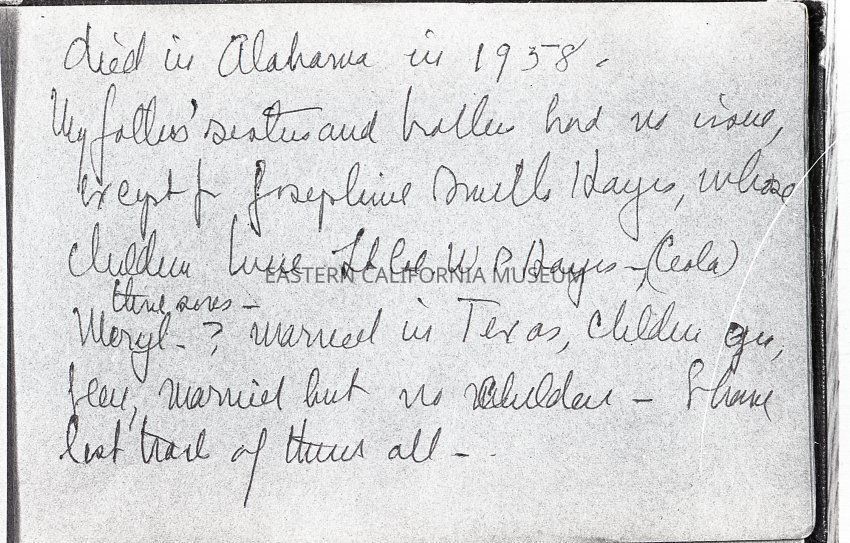 died in Alabama in 1958.
My father's sisters and brothers had no issue,
except for Josephine Smith Hayes, whose
children were Lt. Col. W. P. Hayes - (Ceola)
EASTERN CALIFORNIA MUSEUM
three sons -
Meryl - ? married in Texas, children
married but no children - I have
lost track of them all -